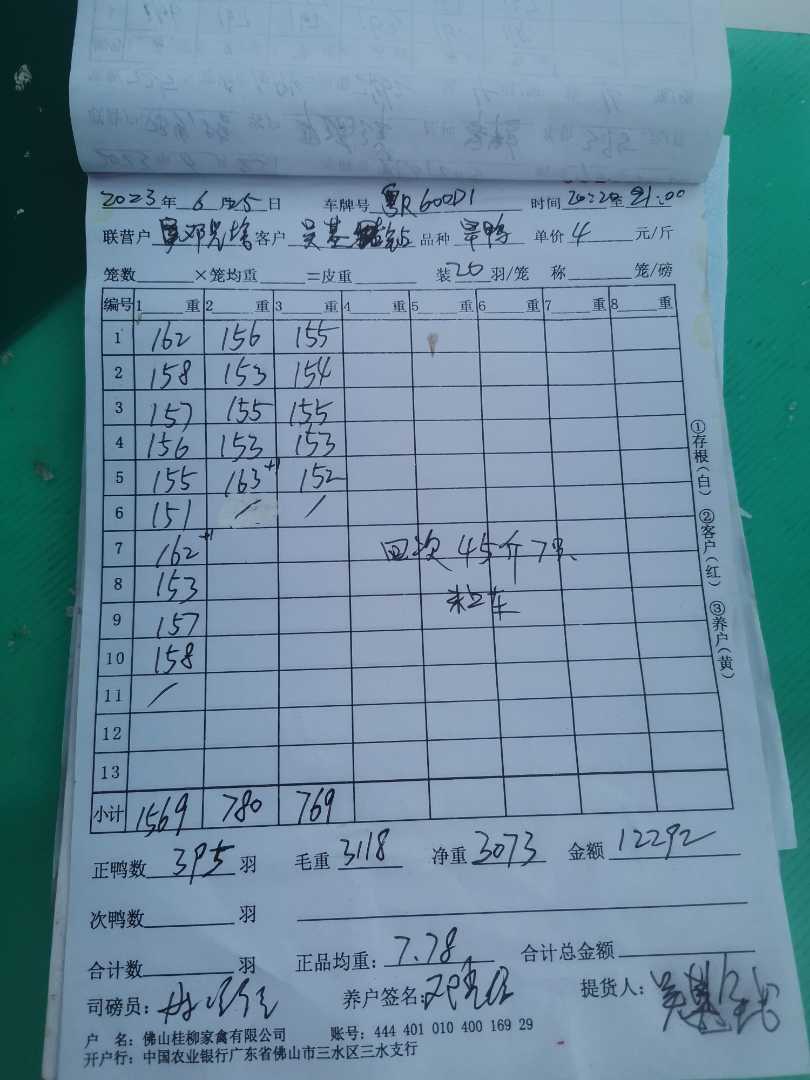 2023年 6月25日 车牌号 粤R600D1 时间 20:20至21:00
联营户 邓 客户 吴基 品种 单价 4 元/斤
笼数 ×笼均重 =皮重 装 20 羽/笼 称 笼/磅
编号 1 重 2 重 3 重 4 重 5 重 6 重 7 重 8 重
1 162 156 155
2 158 153 154
3 157 155 155
4 156 153 153
5 155 163+1 152
6 151 / /
7 162+1 四次 45斤 7只
8 153 车
9 157
10 158
11 /
12
13
小计 1569 780 769
正鸭数 395 羽 毛重 3118 净重 3073 金额 12292
次鸭数 羽
合计数 羽 正品均重: 7.78 合计总金额
司磅员: 养户签名: 提货人: 吴基
户 名: 佛山桂柳家禽有限公司 账号: 444 401 010 400 169 29
开户行: 中国农业银行广东省佛山市三水区三水支行
①存根(白) ②客户(红) ③养户(黄)